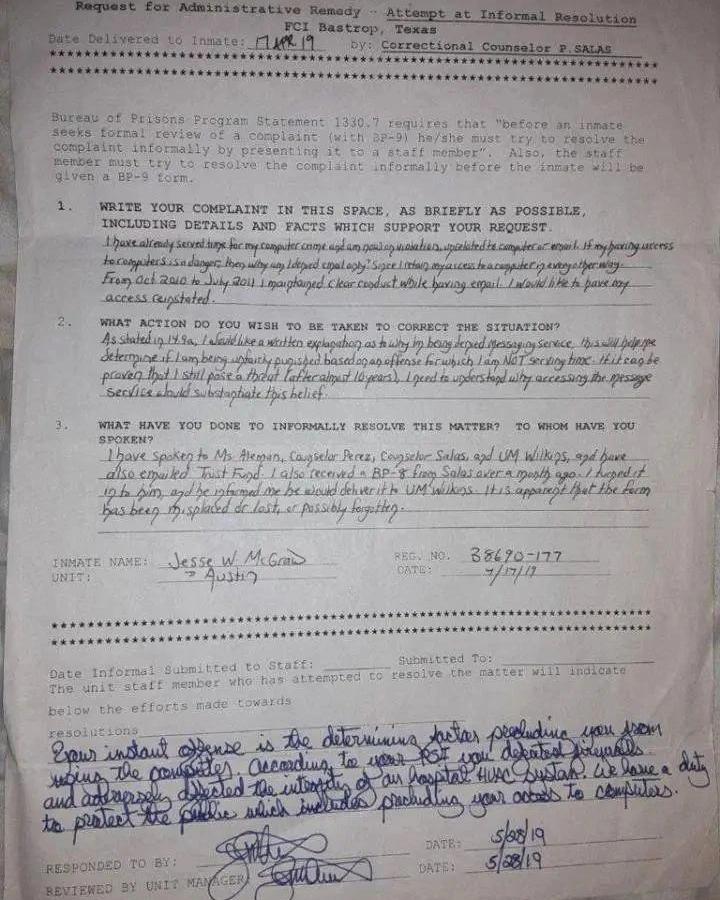 Request for Administrative Remedy - Attempt at Informal Resolution
FCI Bastrop, Texas
Date Delivered to Inmate: 17 APR 19 by: Correctional Counselor P. SALAS
****************************************************************
****************************************************************
Bureau of Prisons Program Statement 1330.7 requires that "before an inmate
seeks formal review of a complaint (with BP-9) he/she must try to resolve the
complaint informally by presenting it to a staff member". Also, the staff
member must try to resolve the complaint informally before the inmate will be
given a BP-9 form.
1. WRITE YOUR COMPLAINT IN THIS SPACE, AS BRIEFLY AS POSSIBLE,
INCLUDING DETAILS AND FACTS WHICH SUPPORT YOUR REQUEST.
I have already served time for my computer crime and am now on violation, unrelated to computer or email. If my having access
to computers is a danger, then why am I denied email only? Since I retain my access to a computer in every other way.
From Oct 2010 to July 2011 I maintained clear conduct while having email. I would like to have my
access reinstated.
2. WHAT ACTION DO YOU WISH TO BE TAKEN TO CORRECT THE SITUATION?
As stated in 14.9a, I would like a written explanation as to why I'm being denied messaging service, this will help me
determine if I am being unfairly punished based on an offense for which I am NOT serving time. If it can be
proven that I still pose a threat (after almost 10 years), I need to understand why accessing the message
service would substantiate this belief.
3. WHAT HAVE YOU DONE TO INFORMALLY RESOLVE THIS MATTER? TO WHOM HAVE YOU
SPOKEN?
I have spoken to Ms. Aleman, Counselor Perez, Counselor Salas, and UM Wilkins, and have
also emailed Trust Fund. I also received a BP-8 from Salas over a month ago. I turned it
in to him, and he informed me he would deliver it to UM Wilkins. It is apparent that the form
has been misplaced or lost, or possibly forgotten.
INMATE NAME: Jesse W. McGraw REG. NO. 38690-177
UNIT: Austin DATE: 4/17/19
****************************************************************
****************************************************************
Date Informal Submitted to Staff: Submitted To:
The unit staff member who has attempted to resolve the matter will indicate
below the efforts made towards
resolutions
Your instant offense is the determining factor precluding you from
using the computers. According to your PSI you defeated firewalls
and adversely affected the integrity of an hospital HVAC system. We have a duty
to protect the public which includes precluding your access to computers.
RESPONDED TO BY: DATE: 5/28/19
REVIEWED BY UNIT MANAGER: DATE: 5/28/19